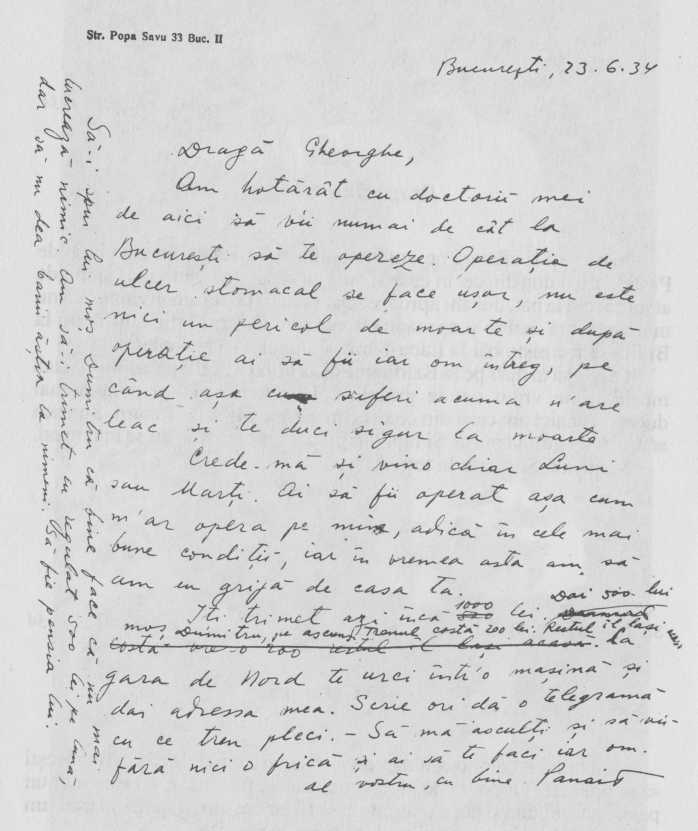 Str. Popa Savu 33 Buc. II
București, 23.6.34
Dragă Gheorghe,
Am hotărât cu doctorii mei
de aici să vii numai de cât la
București să te opereze. Operația de
ulcer stomacal se face ușor, nu este
nici un pericol de moarte și după
operație ai să fii iar om întreg, pe
când așa suferi acuma n'are
leac și te duci sigur la moarte
Crede-mă și vino chiar Luni
sau Marți. Ai să fii operat așa cum
m'ar opera pe mine, adică în cele mai
bune condiții, iar în vremea asta am să
am eu grijă de casa ta.
Dai 500 lui
Iți trimet azi încă 1000 lei
moș Dumitru, pe ascuns. Trenul costă 200 lei. Restul îl lași
costă vre-o 200 restul îl lași acasa. La
gara de Nord te urci într'o mașină și
dai adressa mea. Scrie ori dă o telegramă
cu ce tren pleci. - Să mă asculți și să vii
fără nici o frică și ai să te faci iar om.
al vostru, cu bine. Panait
Să-i spui lui moș Dumitru că bine face că nu mai
lucrează nimic. Am să-i trimet eu regulat 500 lei pe lună,
dar să nu dea banii ăștia la nimeni. Să fie pensia lui.